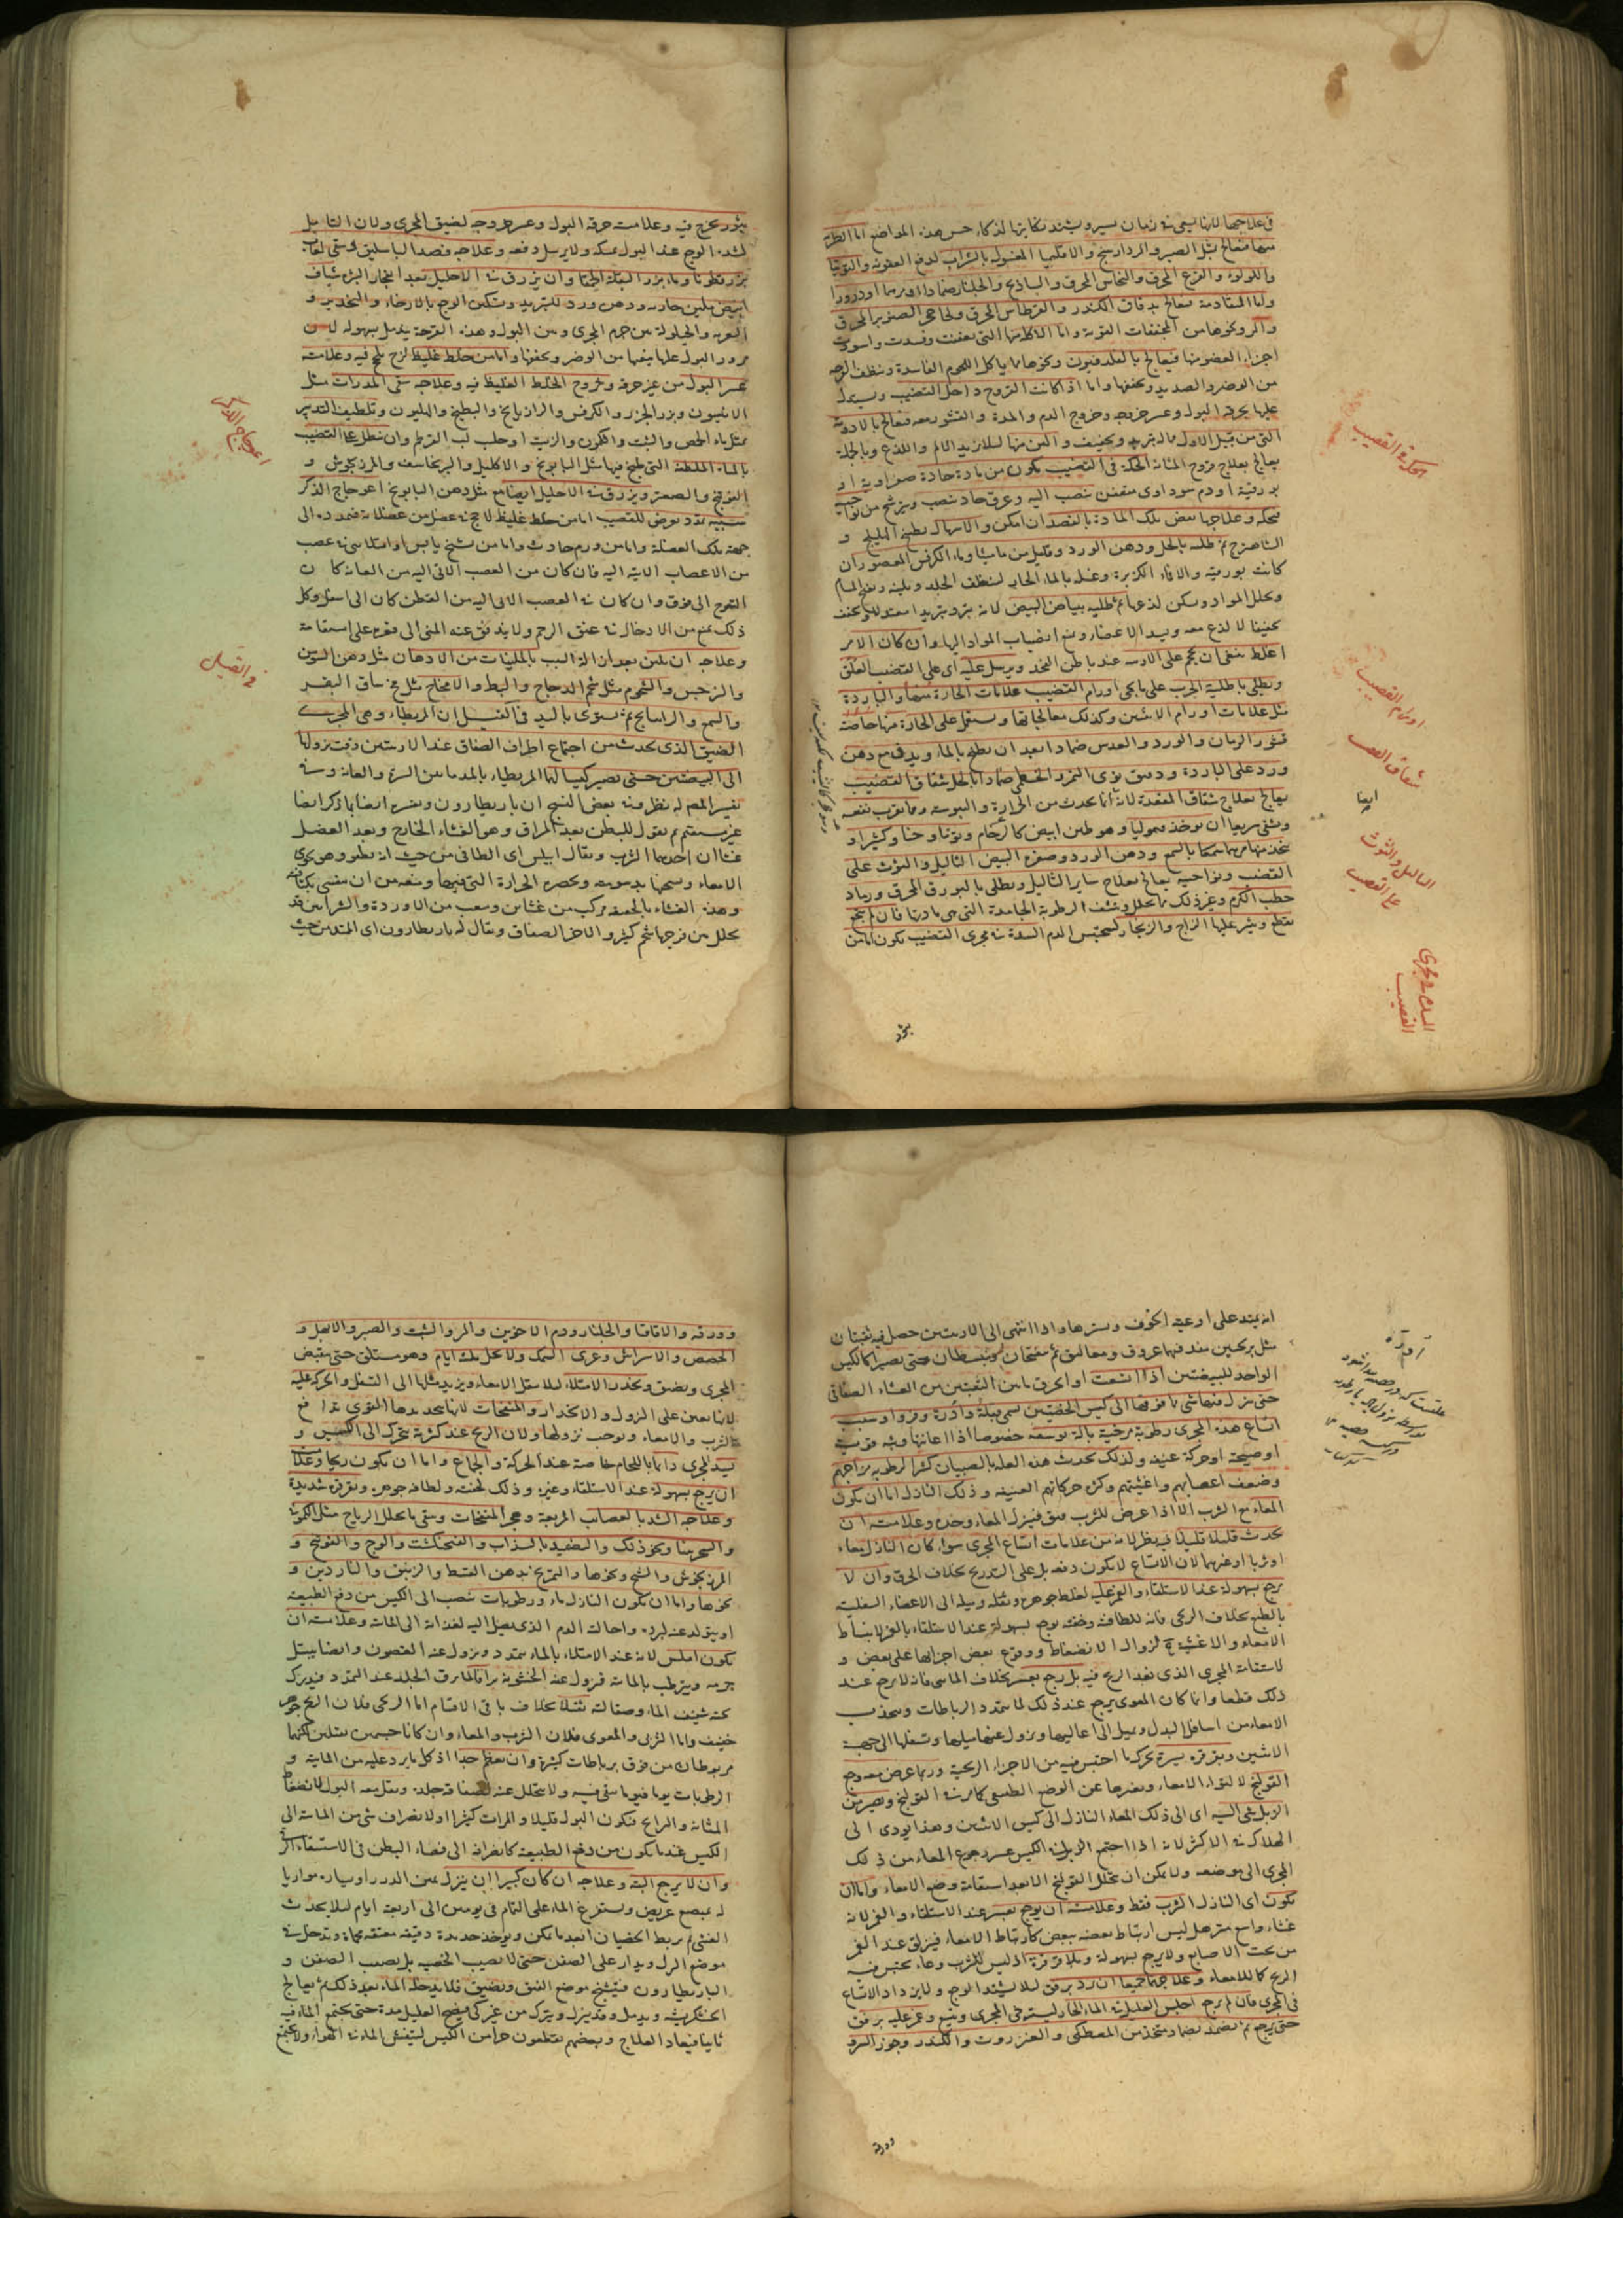 في علاجها لانها يسعى في زمان يسير ويشتد نكايتها لذكاء حس هذه المواضع اما الطرية
منها فتعالج بمثل الصبر والمرداسنج والاقليميا المغسول بالشراب لدفع العفونة والتوتيا
واللؤلؤ والقرع المحرق والنحاس المحرق والساذج والجلنار ضمادا او مرهما او ذرورا
واما المتقادمة فتعالج بدقاق الكندر والقرطاس المحرق ولحا شجر الصنوبر المحرق
والمر ونحوها من المجففات القوية واما الاكلة منها التي تعفنت وفسدت واسودت
اجزاء العضو منها فيعالج بالفلدفيون ونحوها مما ياكل اللحوم الفاسدة وينظف القرحة
من الوضر والصديد ويجففها واما اذا كانت القروح داخل القضيب ويستدل
عليها بحرقة البول وعسر خروجه وخروج الدم والمدة والقشور معه فتعالج بالادوية
التي من قبيل الاول مما له تبريد وتجفيف والين منها ليلا يزيد الالم واللذع وبالجملة
يعالج بعلاج قروح المثانة الحكة في القضيب يكون من مادة حادة صفراوية او
بورقية او دم سوداوي متعفن تنصب اليه وعرق حاد ينصب ويترشح من نواحيه
فيحكه وعلاجها نفض تلك المادة بالفصد ان امكن والاسهال بطبيخ الهليلج و
الشاهترج ثم طليه بالخل ودهن الورد وقليل من ماميثا وماء الكرفس المعصور ان
كانت بورقية والا فماء الكزبرة وغسله بالماء الحار لينظف الجلد ويلينه ويفتح المسام
ويحلل المواد ويسكن لذعها ثم طليه ببياض البيض لانه يبرد تبريدا معتدلا ويجفف
تجفيفا لا لذع معه ويسد الاعضاء ويمنع انصباب المواد اليها وان كان الامر
اغلظ فينبغي ان يحجم على الاربية عند باطن الفخذ ويرسل عليه اي على القضيب العلق
ويطلى باطلية الجرب على ما يجي اورام القضيب علامات الحارة منها والباردة
مثل علامات اورام الانثيين وكذلك معالجاتها ويستعمل على الحارة منها خاصة
قشور الرمان والورد والعدس ضمادا بعد ان يطبخ بالماء ويدق مع دهن
ورد على الباردة ودقيق نوى التمر والخطمي ضمادا بالخل شقاق القضيب
يعالج بعلاج شقاق المقعدة لانه انما يحدث من الحرارة واليبوسة ومما يقرب نفعه
ويشفي سريعا ان يوخذ قيموليا وهو طين ابيض كالرخام وتوتيا وحنا وكثيرا و
يتخذ منها مرهما بالشمع ودهن الورد وصفرة البيض الثاليل والتوث على
القضيب ونواحيه يعالج بعلاج ساير الثاليل ويطلى بالبورق المحرق ورماد
حطب الكرم وغير ذلك مما يحلل وينشف الرطوبة الجامدة التي هي مادتها فان لم ينجع
يقطع وينثر عليها الزاج والزنجار لتحتبس الدم السدة في مجرى القضيب يكون اما من
بثور
الحكة في القضيب
اورام القضيب
شقاق القضيب
ايضا
الثاليل والتوث
على القضيب
السدة في مجرى
القضيب
بثور يخرج فيه وعلامته حرقة البول وعسر خروجه لضيق المجرى ولان الثاليل
لشدة الوجع عند البول يمسكه ولا يرسل دفعه وعلاجه فصد الباسليق وسقي لعاب
بزر قطونا وماء بزر البقلة الحمقا وان يزرق في الاحليل بعد انفجار البثرة شياف
ابيض بلبن جارية ودهن ورد للتبريد وتسكين الوجع بالارخاء والتخدير و
التغرية والحيلولة بين جرم المجرى وبين البول وهذه القرحة يندمل بسهولة لان
مرور البول عليها ينقيها من الوضر ويجففها واما من خلط غليظ لزج يلحج فيه وعلامته
عسر البول من غير حرقة وخروج الخلط الغليظ فيه وعلاجه سقي المدرات مثل
الانيسون وبزر الجزر والكرفس والرازيانج والبطيخ والهليون وتلطيف التدبير
بمثل ماء الحمص والشبت والكمون والزيت او حلب لب القرطم وان ينطل على القضيب
بالمياه الملطفة التي طبخ فيها مثل البابونج والاكليل والبرنجاسف والمرزنجوش و
الفوتنج والصعتر ويزرق في الاحليل ايضا مع مثل دهن البابونج اعوجاج الذكر
سببه تمدد يعرض للقضيب اما من خلط غليظ لاحج في عضل من عضلاته فيمدده الى
جهة تلك العضلة واما من ورم حادث واما من تشنج يابس او امتلائي في عصب
من الاعصاب الاتية اليه فان كان من العصب الاتي اليه من العانة كان
التعوج الى فوق وان كان في العصب الاتي اليه من القطن كان الى اسفل وكل
ذلك يمنع من الادخال في عنق الرحم ولا يندفق عنه المني الى قعره على استقامة
وعلاجه ان يلين بعد ازالة السبب بالملينات من الادهان مثل دهن السوسن
والنرجس والشحوم مثل شحم الدجاج والبط والامخاخ مثل مخ ساق البقر
والشمع والراتيانج ثم يسوى باليد في القيل ان المريطاء وهي المجرى
الضيق الذي يحدث من اجتماع اطراف الصفاق عند الاربيتين وقت نزولها
الى البيضتين حتى يصير كيسا لهما المريطاء بالمد ما بين السرة والعانة وفي
تفسير المصنف له نظر وفي بعض النسخ ان باريطارون وتفسيره ايضا بما ذكر ايضا
غير مستقيم ثم نقول للبطن بعد المراق وهو الغشاء الخارج وبعد العضل
غشاآن احدهما الثرب ويقال ابيلس اي الطافي من حيث انه يعلو وهو يحوي
الامعاء ويسخنها بدسومته ويحصر الحرارة التي فيها ويمنعه من ان ينفش بكثافته
وهذه الغشاء بالحقيقة مركب من غشائين وشعب من الاوردة والشرايين قد
تخلل بين فرجها شحم كثير والاخر الصفاق ويقال له باريطارون اي الممتد من حيث
اعوجاج الذكر
في القيل
انه يمتد على اوعية الجوف ويسترها واذا انتهى الى الاربيتين حصل فيه ثقبان
مثل بربخين ينفذ فيهما عروق ومعاليق ثم ينفتحان وينبسطان حتى يصيرا كالكيس
الواحد للبيضتين اذا اتسعت او انخرق ما بين الثقبتين من الغشاء الصفاقي
حتى نزل فيها شيء مما فوقها الى كيس الخصيتين يسمى قيلة وادرة وفروا وسبب
اتساع هذه المجرى رطوبة مرخية بالة توسعه خصوصا اذا اعانها وثبة قوية
او صيحة او حركة عنيفة ولذلك يحدث هذه العلة بالصبيان كثيرا لرطوبة مزاجهم
وضعف اعصابهم واغشيتهم وكثرة حركاتهم العنيفة وذلك النازل اما ان يكون
المعاء مع الثرب الا اذا عرض للثرب فتق فينزل المعاء وحده وعلامته ان
يحدث قليلا قليلا فيه نظر لانه من علامات اتساع المجرى سواء كان النازل معاء
او ثربا او غيرهما لان الاتساع لا يكون دفعة بل على التدريج بخلاف الخرق وان لا
يرجع بسهولة عند الاستلقاء والغمز عليه لغلظ جوهره وثقله وميله الى الاعضاء السفلية
بالطبع بخلاف الريحي فانه للطافته وخفته يرجع بسهولة عند الاستلقاء بالغمز لانبساط
الامعاء والاغشية لزوال الانضغاط ووقوع بعض اجزائها على بعض و
لاستقامة المجرى الذي نفذ الريح فيه بل يرجع بعسر بخلاف المائي فانه لا يرجع عند
ذلك قطعا وانما كان المعوي يرجع عند ذلك لما يتمدد الرباطات وينجذب
الامعاء من اسافل البدن ويميل الى اعاليها ويزول عنها ميلها وثقلها الى جهة
الانثيين وبقرقرة يسيرة بحركة ما احتبس فيه من الاجزاء الريحية وربما عرض معه وجع
القولنج لالتواء الامعاء وتغيرها عن الوضع الطبيعي كما مر في القولنج ويصير من
الزبل شيء اليه اي الى ذلك المعاء النازل الى كيس الانثيين وهذا يودي الى
الهلاك في الاكثر لانه اذا احتبس الزبل في الكيس عسر رجوع المعاء من ذلك
المجرى الى موضعه ولا يمكن ان ينحل القولنج الا بعد استقامة وضع الامعاء واما ان
يكون اي النازل الثرب فقط وعلامته ان يرجع بعسر عند الاستلقاء والغمز لانه
غشاء واسع مترهل ليس ارتباط بعضه ببعض كارتباط الامعاء فيزلق عند الغمز
من تحت الاصابع ولا يرجع بسهولة وبلا قرقرة اذ ليس للثرب وعاء يحتبس فيه
الريح كما للامعاء وعلاجهما جميعا ان يرد برفق ليلا يشتد الوجع ولا يزداد الاتساع
في المجرى فان لم يرجع اجلس العليل في الماء الحار ليسترخي المجرى ويتسع وغمز عليه برفق
حتى يرجع ثم يضمد بضماد متخذ من المصطكى والعنزروت والكندر وجوز السرو
وورقه
وورقه والاقاقيا والجلنار ودم الاخوين والمر والشب والصبر والابهل و
الحضض والاسراش وغرى السمك ولا يحل ثلث ايام وهو مستلق حتى ينقبض
المجرى ويضيق ويحذر الامتلاء ليلا يثقل الامعاء ويزيد ميلها الى التسفل والحركة عليه
لانها تعين على النزول والانحدار والمنفخات لانها يمددها التقوي تدافع
الثرب والامعاء ويوجب نزولها ولان الريح عند كثرته يتحرك الى الكيس و
يشد المجرى دائما باللجام خاصة عند الحركة والجماع واما ان يكون ريحا وعلامته
ان يرجع بسهولة عند الاستلقاء وغيره وذلك لخفته ولطافة جوهره وبقرقرة شديدة
وعلاجه الشد بالعصائب المربعة وهجر المنفخات وسقي ما يحلل الرياح مثل الكمون
والسجزينا ونحو ذلك والتضميد بالسذاب والفنجنكشت والوج والفوتنج و
المرزنجوش والشيح ونحوها والتمريخ بدهن القسط والزنبق والناردين و
نحوها واما ان يكون النازل ماء ورطوبات تنصب الى الكيس من دفع الطبيعة
او يتولد عنه لبرده واحالته الدم الذي يصل اليه لغذائه الى المائية وعلامته ان
يكون املس لانه عند الامتلاء بالماء يتمدد ويزول عنه الغضون وايضا يبتل
جرمه ويترطب بالمائية فيزول عنه الخشونة براقا لما يرق الجلد عند التمدد فيدرك
تحته شفيف الماء وصقالته ثقيلا بخلاف باقي الاقسام اما الريحي فلان الريح جوهر
خفيف واما الثربي والمعوي فلان الثرب والمعاء وان كانا جسمين ثقيلين لكنهما
مربوطان من فوق برباطات كثيرة وان يعظم جدا اذ كل ما يرد عليه من المائية و
الرطوبات يوما فيوما يبقى فيه ولا يتحلل عنه لصفاقة جلده ويقل معه البول لانضغاط
المثانة والرابح فيكون البول قليلا والمرات كثيرا او لانصراف شيء من المائية الى
الكيس عند ما يكون من دفع الطبيعة كانصرافه الى فضاء البطن في الاستسقاء الزقي
وان لا يرجع البتة وعلاجه ان كان كبيرا ان يبزل يمنى الدرز او يساره موازيا
له بمبضع عريض ويستفرغ الماء على التمام في يومين الى اربعة ايام ليلا يحدث
الغشي ثم يربط الخصيان ابعد ما يمكن ويوخذ حديدة دقيقة معقفة محماة ويدخل في
موضع البزل ويدار على الصفن حتى لا يصيب الخصية بل يصيب الصفن و
الباريطارون فيتشنج موضع الفتق ويضيق فلا يدخله الماء بعد ذلك ثم يعالج
الخشكريشة ويدمل وقد يبزل ويترك من غير كي فيصح العليل مدة حتى يجتمع الماء فيه
ثانيا فيعاد العلاج وبعضهم يقطعون جزءا من الكيس ليتنفس الماء في الهواء ولا يجتمع